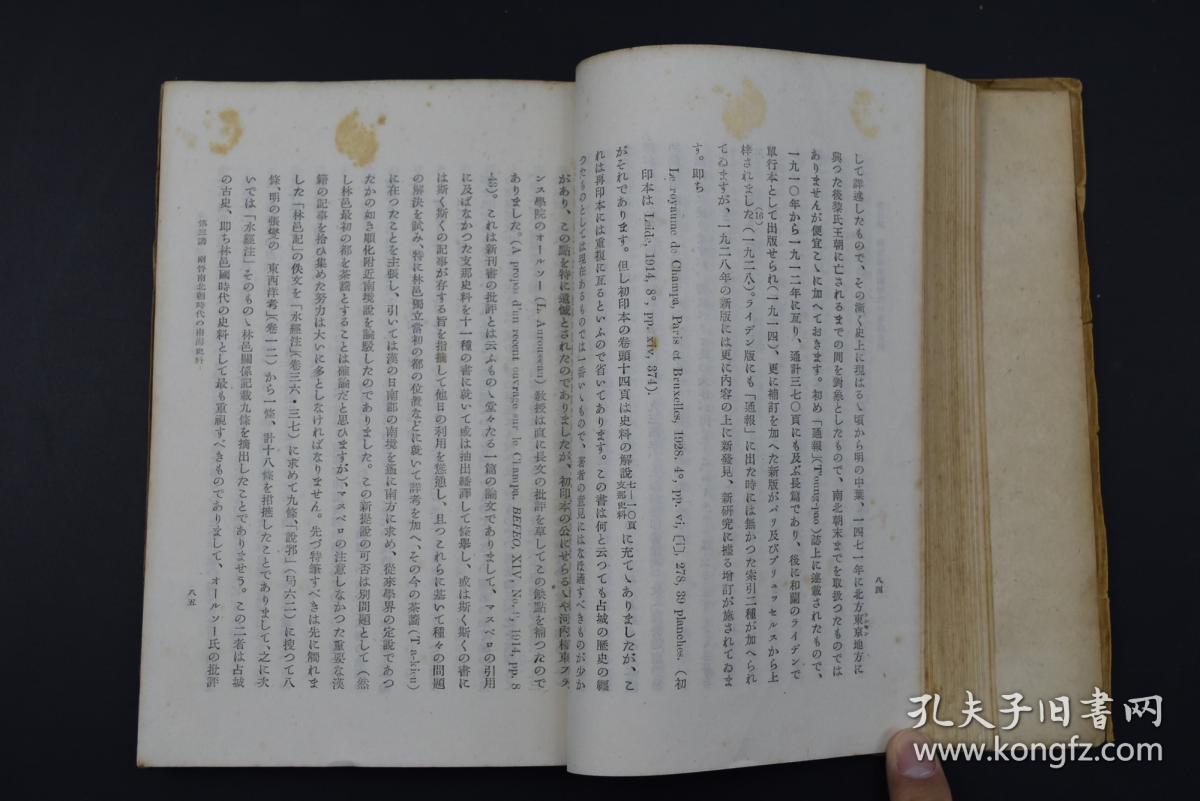 して詳述したもので、その漸く史上に現はるゝ頃から明の中葉、一四七一年に北方東京地方に
興つた後黎氏王朝に亡されるまでの間を對象としたもので、南北朝末までを取扱つたものでは
ありませんが便宜こゝに加へておきます。初め「通報」(T'oung-pao)誌上に連載されたもので、
一九一〇年から一九一二年に亙り、通計三七〇頁にも及ぶ長篇であり、後に和蘭のライデンで
單行本として出版せられ(一九一四)、更に補訂を加へた新版がパリ及びブリュッセルスから上
梓されました(一九二八)。(16)ライデン版にも「通報」に出た時には無かつた索引二種が加へられ
てゐますが、一九二八年の新版には更に内容の上に新發見、新研究に據る增訂が施されてゐま
す。即ち
Le royaume de Champa, Paris et Bruxelles, 1928. 4°, pp. vi, [i], 278, 39 planches. (初
印本は Leide, 1914, 8°, pp. xiv, 374).
がそれであります。但し初印本の卷頭十四頁は史料の解說七—一〇頁支那史料に充てゝありましたが、こ
れは再印本には重複に亙るといふので省いてあります。この書は何と云つても占城の歷史の纒
つたものとしては現在あるものでは一番いゝもので、著者の意見にはなほ通すべきものが少か
八四
があり、この點を特に遺憾とされたのでありましたが、初印本の公にせらるゝや河内極東フラ
ンス學院のオールソー(L. Aurousseau)教授は直に長文の批評を草してこの缺點を補つたので
ありました。(A propos d'un récent ouvrage sur le Champa. BEFEO, XIV, No. 9, 1914, pp. 8
-43)。これは新刊書の批評とは云ふものゝ堂々たる一篇の論文でありまして、マスペロの引用
に及ばなかつた支那史料を十一種の書に就いて或は抽出繙譯して條擧し、或は斯く斯くの書に
は斯く斯くの記事が存する旨を指摘して他日の利用を慫慂し、且つこれらに基いて種々の問題
の解決を試み、特に林邑獨立當初の都の位置などに就いて詳考を加へ、その今の茶蕎(Tra-kieu)
に在つたことを主張し、引いては漢の日南郡の南境を遙に南方に求め、從來學界の定說であつ
たかの如き順化附近南境說を論駁したのでありました。この新提說の可否は別問題として(然
し林邑最初の都を茶蕎とすることは確論だと思ひますが)、マスペロの注意しなかつた重要な漢
籍の記事を拾ひ集めた努力は大いに多としなければなりません。先づ特筆すべきは先に觸れま
した「林邑記」の佚文を「水經注」(卷三六・三七)に求めて九條、「說郛」(弓六二)に搜つて八
條、明の張燮の「東西洋考」(卷一二)から一條、計十八條を措摭したことでありまして、之に次
いでは「水經注」そのものゝ林邑關係記載九條を摘出したことでありませう。この二者は占城
の古史、即ち林邑國時代の史料として最も重視すべきものでありまして、オールソー氏の批評
第三講 兩晉南北朝時代の南海史料
八五
孔夫子旧书网
www.kongfz.com